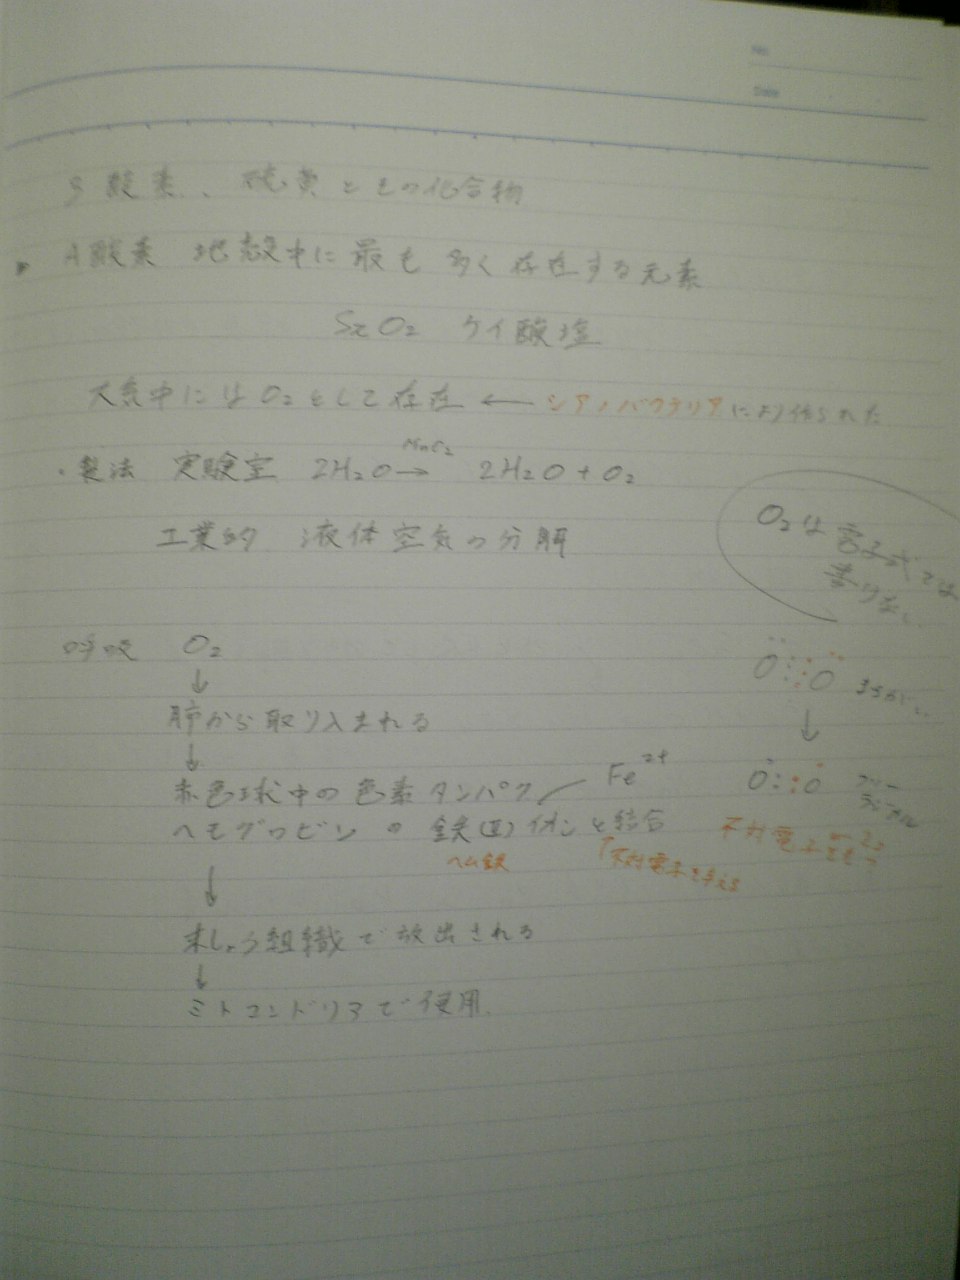 No.
Date
3 酸素、硫黄とその化合物
A 酸素 地殻中に最も多く存在する元素
SiO2 ケイ酸塩
大気中にはO2として存在 ← シアノバクテリアにより作られた
・製法 実験室 2H2O →MnO2 2H2O + O2
工業的 液体空気の分解
O2は電子式では
書けない
呼吸 O2
↓
O::O まちがい
肺から取り入まれる
↓
↓
赤色球中の色素タンパク Fe2+
O::O
ヘモグロビンの鉄(II)イオンと結合
不対電子を2つもつ
ヘム鉄 不対電子を
↓
末しょう組織で放出される
↓
ミトコンドリアで使用.